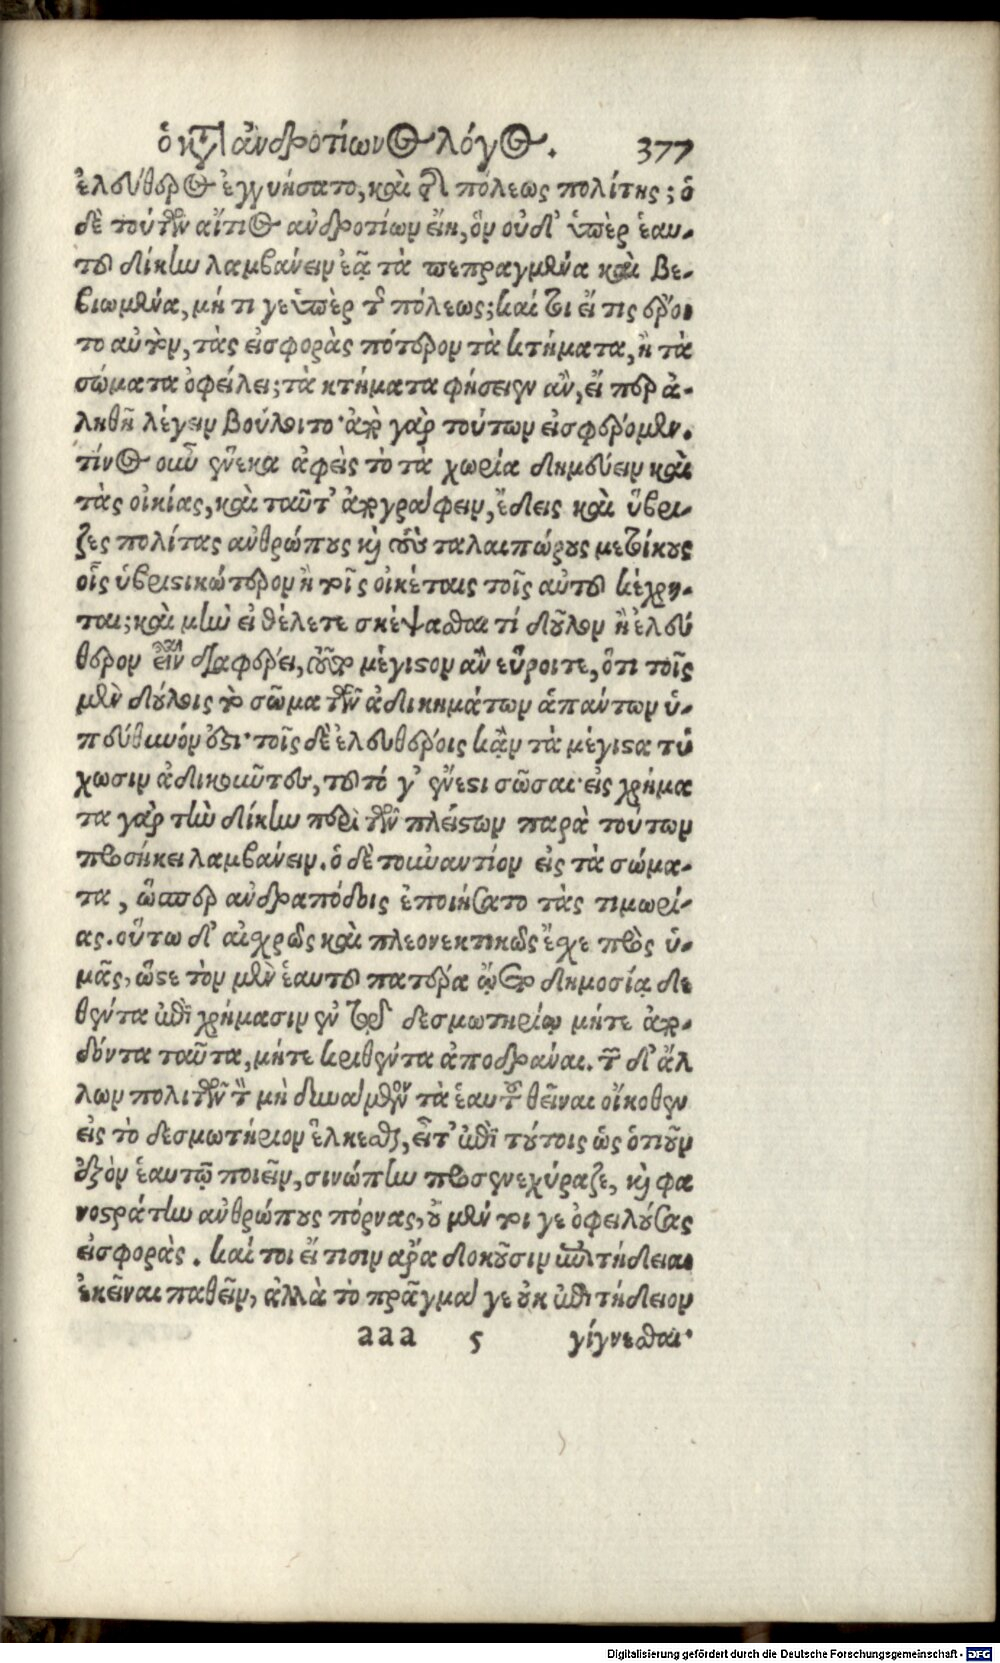 ὁ κατ' ἀνδροτίωνος λόγος. 377
ἐλεύθερος ἐγγυήσατο, καὶ τῆς πόλεως πολίτης; ὁ
δὲ τούτων αἴτιος ἀνδροτίων εἴη, ὃν οὐδ' ὑπὲρ ἑαυ-
τοῦ δίκην λαμβάνειν ἐᾷ τὰ πεπραγμένα καὶ βε-
βιωμένα, μή τι γε ὑπὲρ τῆς πόλεως; καί τοι εἴ τις ἔροι
το αὐτὸν, τὰς εἰσφορὰς πότερον τὰ κτήματα, ἢ τὰ
σώματα ὀφείλει; τὰ κτήματα φήσειεν ἂν, εἴ περ ἀ-
ληθῆ λέγειν βούλοιτο· ἀπὸ γὰρ τούτων εἰσφέρομεν.
τίνος οὖν ἕνεκα ἀφεὶς τὸ τὰ χωρία δημεύειν καὶ
τὰς οἰκίας, καὶ ταῦτ' ἀπογράφειν, ἔδεις καὶ ὕβρι-
ζες πολίτας ἀνθρώπους καὶ τοὺς ταλαιπώρους μετοίκους
οἷς ὑβριστικώτερον ἢ τοῖς οἰκέταις τοῖς αὑτοῦ κέχρη-
ται; καὶ μὴν εἰ θέλετε σκέψασθαι τί δοῦλον ἢ ἐλεύ
θερον εἶναι διαφέρει, τοῦτο μέγιστον ἂν εὕροιτε, ὅτι τοῖς
μὲν δούλοις τὸ σῶμα τῶν ἀδικημάτων ἁπάντων ὑ-
πεύθυνόν ἐστι· τοῖς δὲ ἐλευθέροις κἂν τὰ μέγιστα τύ
χωσιν ἀδικοῦντες, τοῦτό γ' ἔνεστι σῶσαι· εἰς χρήμα
τα γὰρ τὴν δίκην περὶ τῶν πλείστων παρὰ τούτων
προσήκει λαμβάνειν. ὁ δὲ τοὐναντίον εἰς τὰ σώμα-
τα, ὥσπερ ἀνδραπόδοις ἐποιήσατο τὰς τιμωρί-
ας. οὕτω δ' αἰσχρῶς καὶ πλεονεκτικῶς ἔσχε πρὸς ὑ-
μᾶς, ὥστε τὸν μὲν ἑαυτοῦ πατέρα ᾤετο δημοσίᾳ δε
θέντα ἐπὶ χρήμασιν ἐν τῷ δεσμωτηρίῳ μήτε ἀπο-
δόντα ταῦτα, μήτε κριθέντα ἀποδρᾶναι. τῶν δ' ἄλ
λων πολιτῶν τὸν μὴ δυνάμενον τὰ ἑαυτοῦ θεῖναι οἴκοθεν
εἰς τὸ δεσμωτήριον ἕλκεσθαι, εἶτ' ἐπὶ τούτοις ὡς ὁτιοῦν
ἐξὸν ἑαυτῷ ποιεῖν, σινώπην προσενεχύραζε, καὶ φα
νοστράτην ἀνθρώπους πόρνας, οὐ μέν τοι γε ὀφειλούσας
εἰσφοράς. καί τοι εἴ τισιν ἄρα δοκοῦσιν ἐπιτήδειαι
ἐκεῖναι παθεῖν, ἀλλὰ τὸ πρᾶγμά γε οὐκ ἐπιτήδειον
aaa 5 γίγνεσθαι·
Digitalisierung gefördert durch die Deutsche Forschungsgemeinschaft - DFG